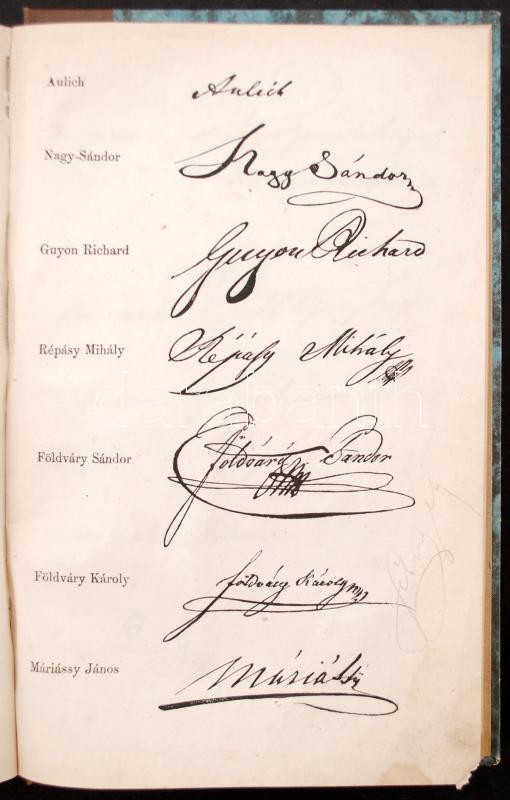 Aulich Aulich
Nagy-Sándor Nagy Sándor
Guyon Richard Guyon Richard
Répásy Mihály Répásy Mihály
darabanth
Földváry Sándor Földváry Sándor
Földváry Károly Földváry Károly
Máriássy János Máriássy